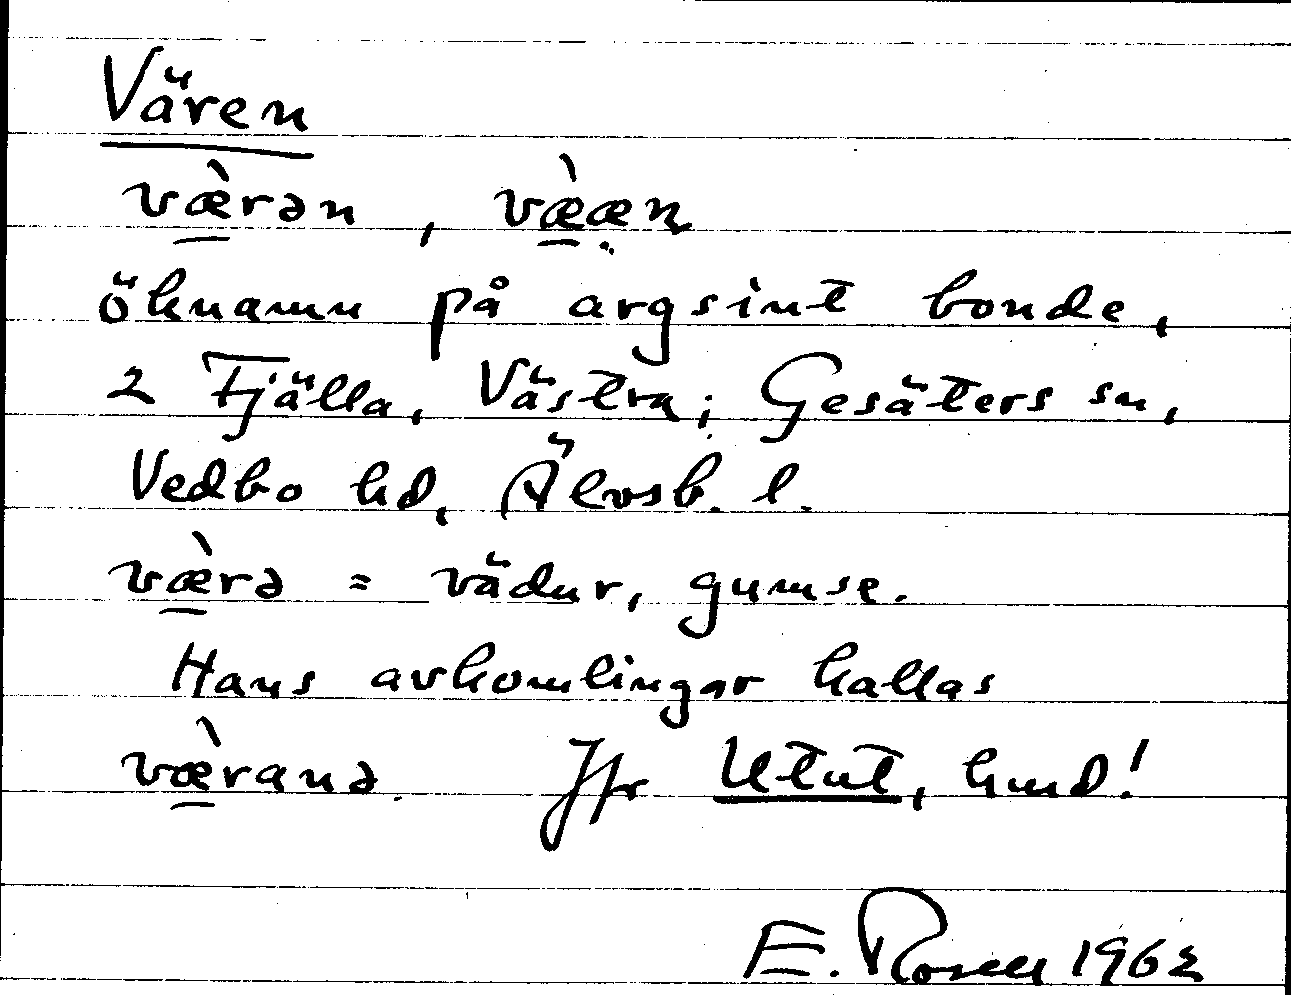 Vären
væ̀rən, væ̀æn
öknamn på argsint bonde,
2 Fjälla, Västra; Gesäters sn,
Vedbo hd, Älvsb. l.
væ̀rə = vädur, gumse.
Hans avkomlingar kallas
væ̀ranə. Jfr Utut, hund!
E. Rosell 1962